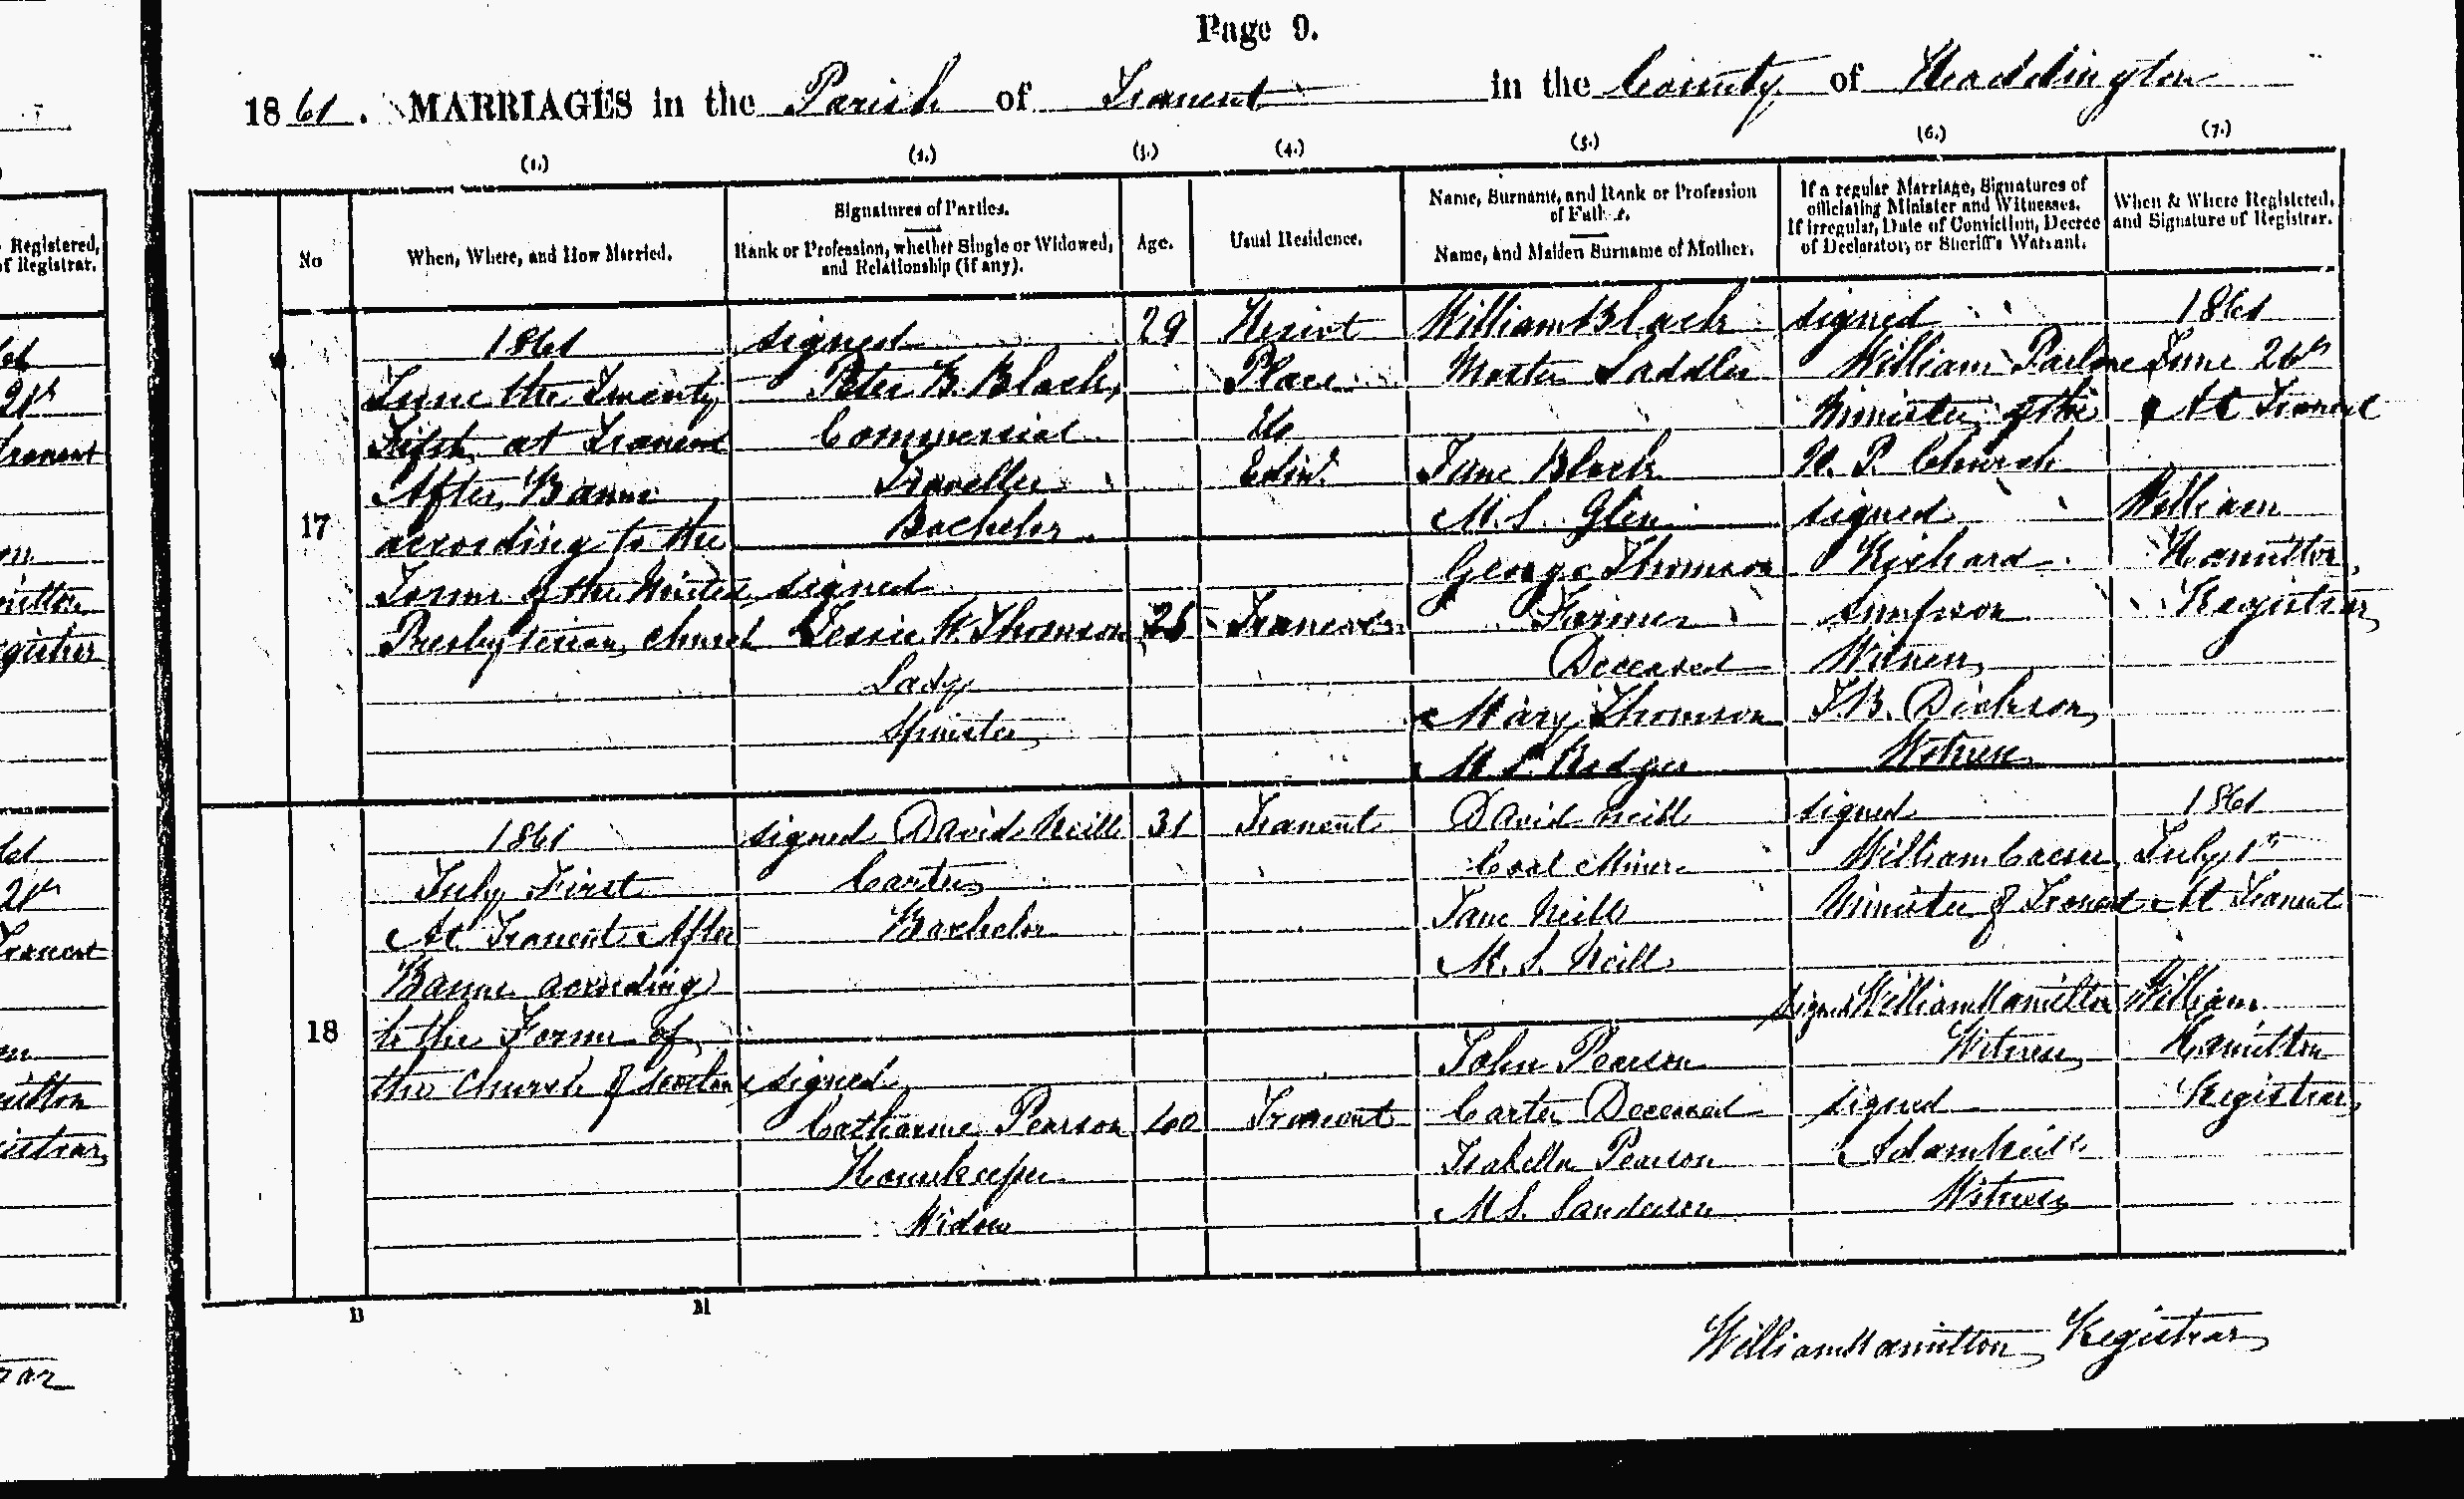 Page 9.
1861. MARRIAGES in the Parish of Tranent in the County of Haddington
(1.) (2.) (3.) (4.) (5.) (6.) (7.)
No
When, Where, and How Married.
Signatures of Parties.
Rank or Profession, whether Single or Widowed,
and Relationship (if any).
Age.
Usual Residence.
Name, Surname, and Rank or Profession
of Father.
Name, and Maiden Surname of Mother.
If a regular Marriage, Signatures of
officiating Minister and Witnesses.
If irregular, Date of Conviction, Decree
of Declarator, or Sheriff's Warrant.
When & Where Registered,
and Signature of Registrar.
17
1861
June the Twenty
Fifth at Tranent
After Banns
according to the
Forms of the United
Presbyterian Church
signed
Peter B. Black,
Commercial
Traveller
Bachelor
signed
Jessie W. Thomson
Lady
Spinster
29
Heriot
Place
Edinr
Tranent
William Black
Master Saddler
Jane Black
M.S. Glen
George Thomson
Farmer
Deceased
Mary Thomson
M.S.
signed
William Parlane
Minister of the
U. P. Church
signed
Richard
Simpson
Witness
J.B. Dickson,
Witness
1861
June 26th
At Tranent
William
Hamilton,
Registrar
18
1861
July First
At Tranent After
Banns according
to the Forms of
the Church of Scotland
signed David Neill
Carter
Bachelor
signed
Catharine Pearson
Housekeeper
Widow
31
40
Tranent
Tranent
David Neill
Coal Miner
Jane Neill
M.S. Neill
John Pearson
Carter Deceased
Isabella Pearson
M.S. Sanderson
signed
William Caesar
Minister of Tranent
signed William Hamilton
Witness
signed
Adam Neill
Witness
1861
July 1st
At Tranent
William
Hamilton
Registrar
B M
William Hamilton Registrar